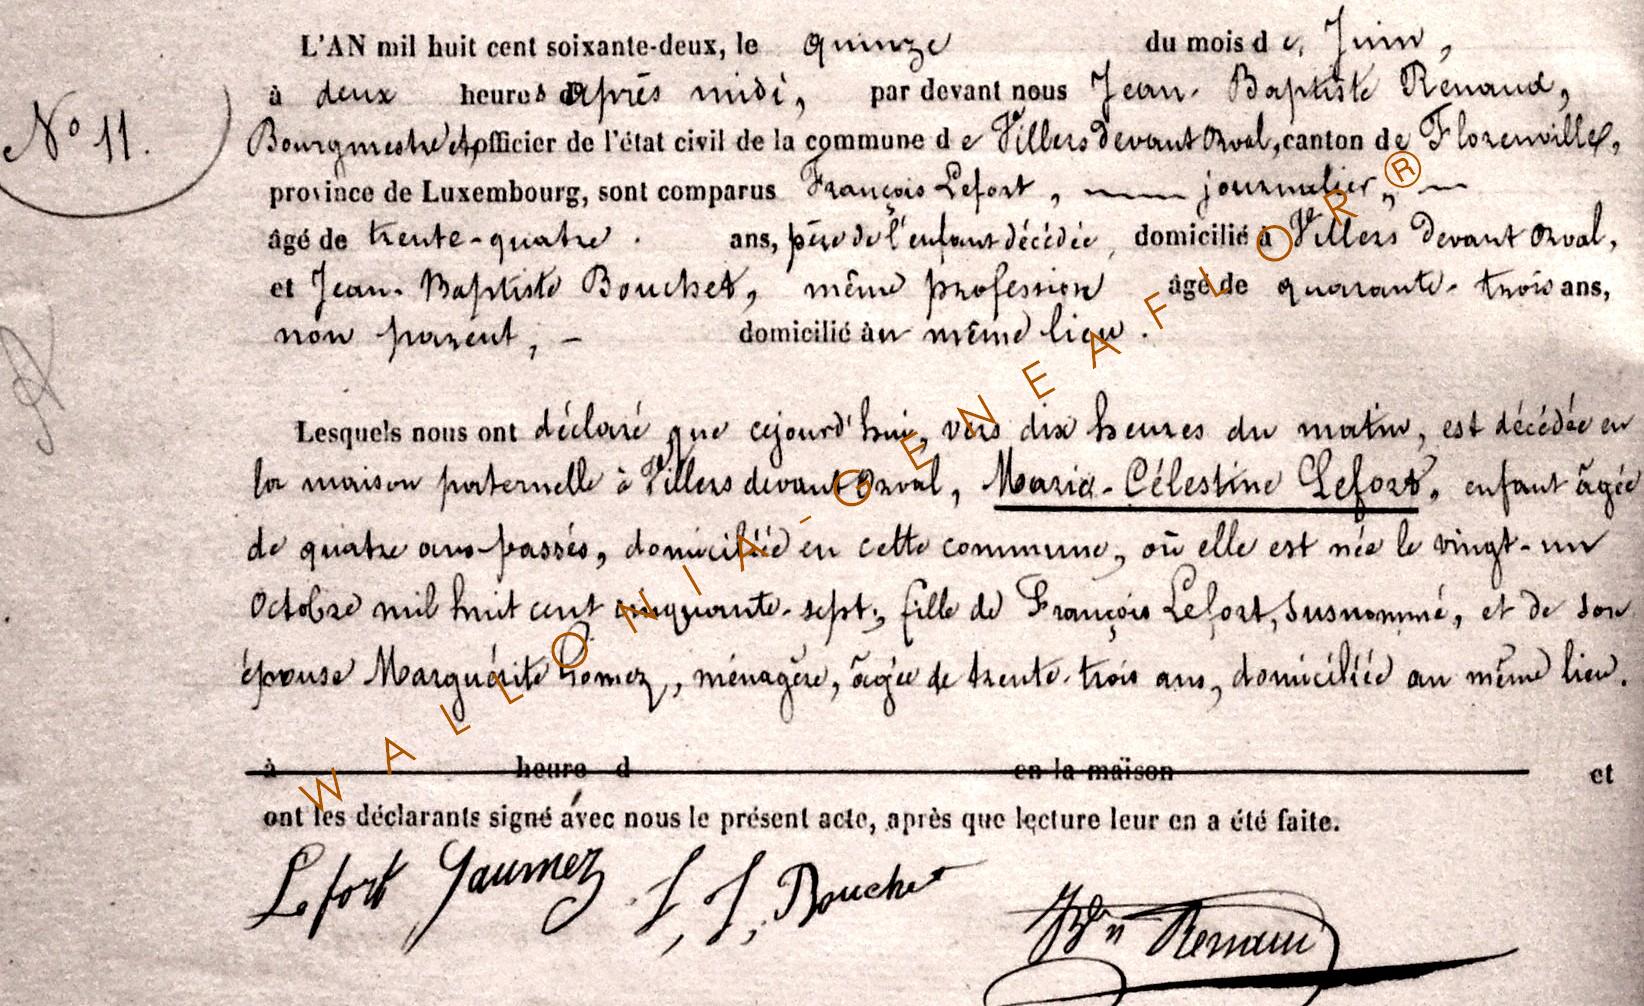 L'AN mil huit cent soixante-deux, le quinze du mois d e, Juin,
à deux heures d'après midi, par devant nous Jean-Baptiste Rénaud,
N° 11.
Bourgmestre et officier de l'état civil de la commune d e Villers devant Orval, canton de Florenville,
province de Luxembourg, sont comparus François Lefort, journalier,
âgé de trente-quatre ans, père de l'enfant décédée, domicilié à Villers devant Orval,
et Jean-Baptiste Bouchet, même profession âgé de quarante-trois ans,
non parent, - domicilié au même lieu.
Lesquels nous ont déclaré que cejourd'hui, vers dix heures du matin, est décédée en
la maison paternelle à Villers devant Orval, Maria-Célestine Lefort, enfant âgée
de quatre ans passés, domiciliée en cette commune, où elle est née le vingt-un
Octobre mil huit cent cinquante-sept, fille de François Lefort, susnommé, et de son
épouse Marguérite Gomez, ménagère, âgée de trente-trois ans, domiciliée au même lieu.
à heure d en la maison et
ont les déclarants signé avec nous le présent acte, après que lecture leur en a été faite.
Lefort Gaumez J, J, Bouchet
JBn Renaud
WALLONIA-GENEAFLOR®